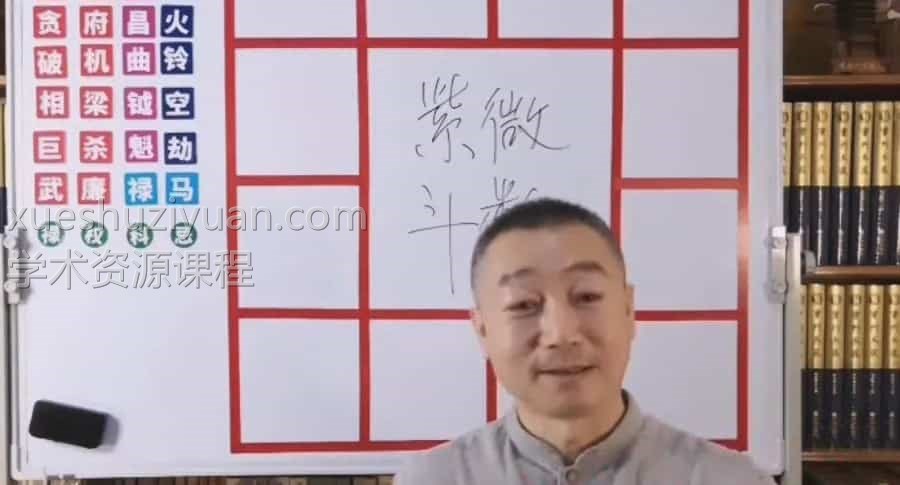 贪 府 昌 火
破 机 曲 铃
相 梁 钺 空
巨 杀 魁 劫
武 廉 禄 马
禄 权 科 忌
紫微
斗数
xueshuziyuan.com
学术资源课程